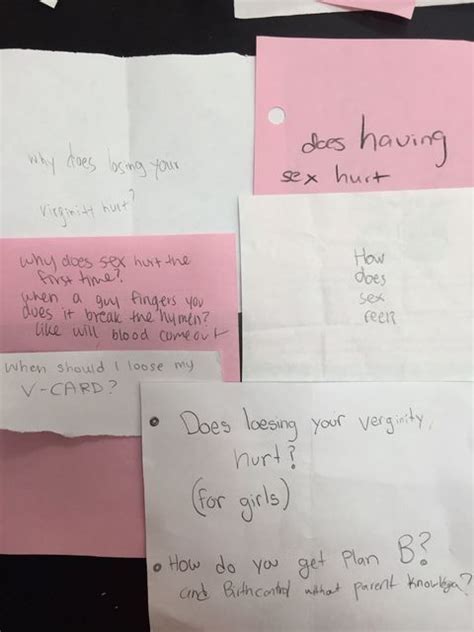 why does losing your
virginitt hurt?
does having
sex hurt
why does sex hurt the
first time?
when a guy fingers you
does it break the hymen?
like will blood come out
How
does
sex
feel?
When should I loose my
V-CARD?
• Does loesing your verginity
hurt?
(for girls)
• How do you get Plan B?
and Birthcontrol without parent